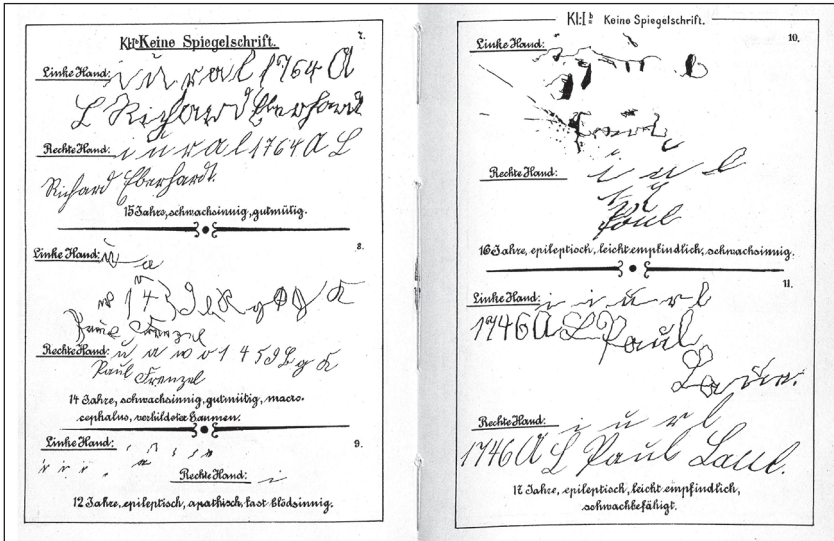 Kl:Iª Keine Spiegelschrift.
7.
Linke Hand: i u r a l 1764 A
L Richard Eberhardt
Rechte Hand: i u r a l 1764 A L
Richard Eberhardt.
15 Jahre, schwachsinnig, gutmütig.
8.
Linke Hand: u
a
w 1 4
Paul Frenzel
Rechte Hand: u a w o 1 4 5 9 L g K
Paul Frenzel
14 Jahre, schwachsinnig, gutmütig, macro-
cephalus, verbildeter Gaumen.
9.
Linke Hand:
Rechte Hand: i
12 Jahre, epileptisch, apathisch, fast blödsinnig.
Kl:I b Keine Spiegelschrift.
10.
Linke Hand:
Rechte Hand: i u l
Paul
16 Jahre, epileptisch, leicht empfindlich, schwachsinnig.
11.
Linke Hand: i i u r l
1746 A L Paul
Rechte Hand: i u r l
1746 A L Paul Laul.
17 Jahre, epileptisch, leicht empfindlich,
schwachbefähigt.